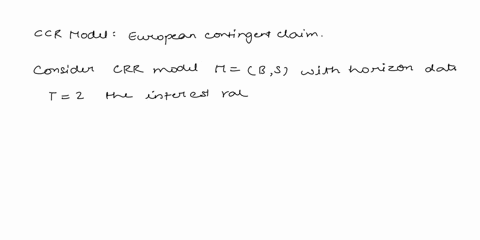 CCR Model: European contingent claim.
Consider CRR model M = (B,S) with horizon data
T = 2 the interest rat